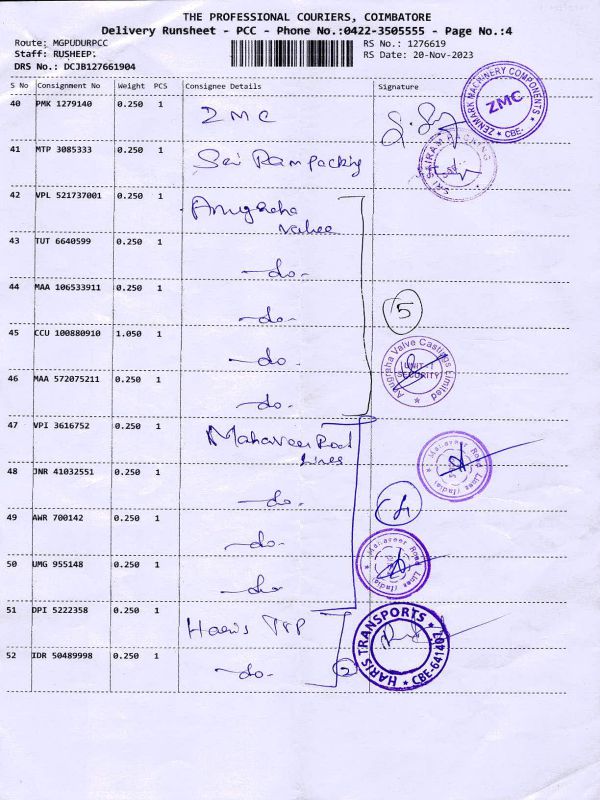 THE PROFESSIONAL COURIERS, COIMBATORE
Delivery Runsheet - PCC - Phone No.:0422-3505555 - Page No.:4
Route: MGPUDURPCC
RS No.: 1276619
Staff: RUSHEEP.
RS Date: 20-Nov-2023
DRS No.: DCJB127661904
S No Consignment No Weight PCS Consignee Details Signature
40 PMK 1279140 0.250 1 ZMC
ZENMARK MACHINERY COMPONENTS * CBE- * ZMC
41 MTP 3085333 0.250 1 Sai Ram packing
SRI SAIRAM PACKING
42 VPL 521737001 0.250 1 Anugraha
Valve
43 TUT 6640599 0.250 1 -do-
44 MAA 106533911 0.250 1 -do-
5
45 CCU 100880910 1.050 1 -do-
Anugraha Valve Castings Limited
UNIT-I
SECURITY
46 MAA 572075211 0.250 1 -do-
47 VPI 3616752 0.250 1 Mahaveer Road
Lines
Mahaveer Road Lines (India)
48 JNR 41032551 0.250 1 -do-
4
49 AWR 700142 0.250 1 -do-
50 UMG 955148 0.250 1 -do-
Mahaveer Road Lines (India)
51 DPI 5222358 0.250 1 Haris TSP
HARIS TRANSPORTS * CBE-641402 *
52 IDR 50489998 0.250 1 -do-
2